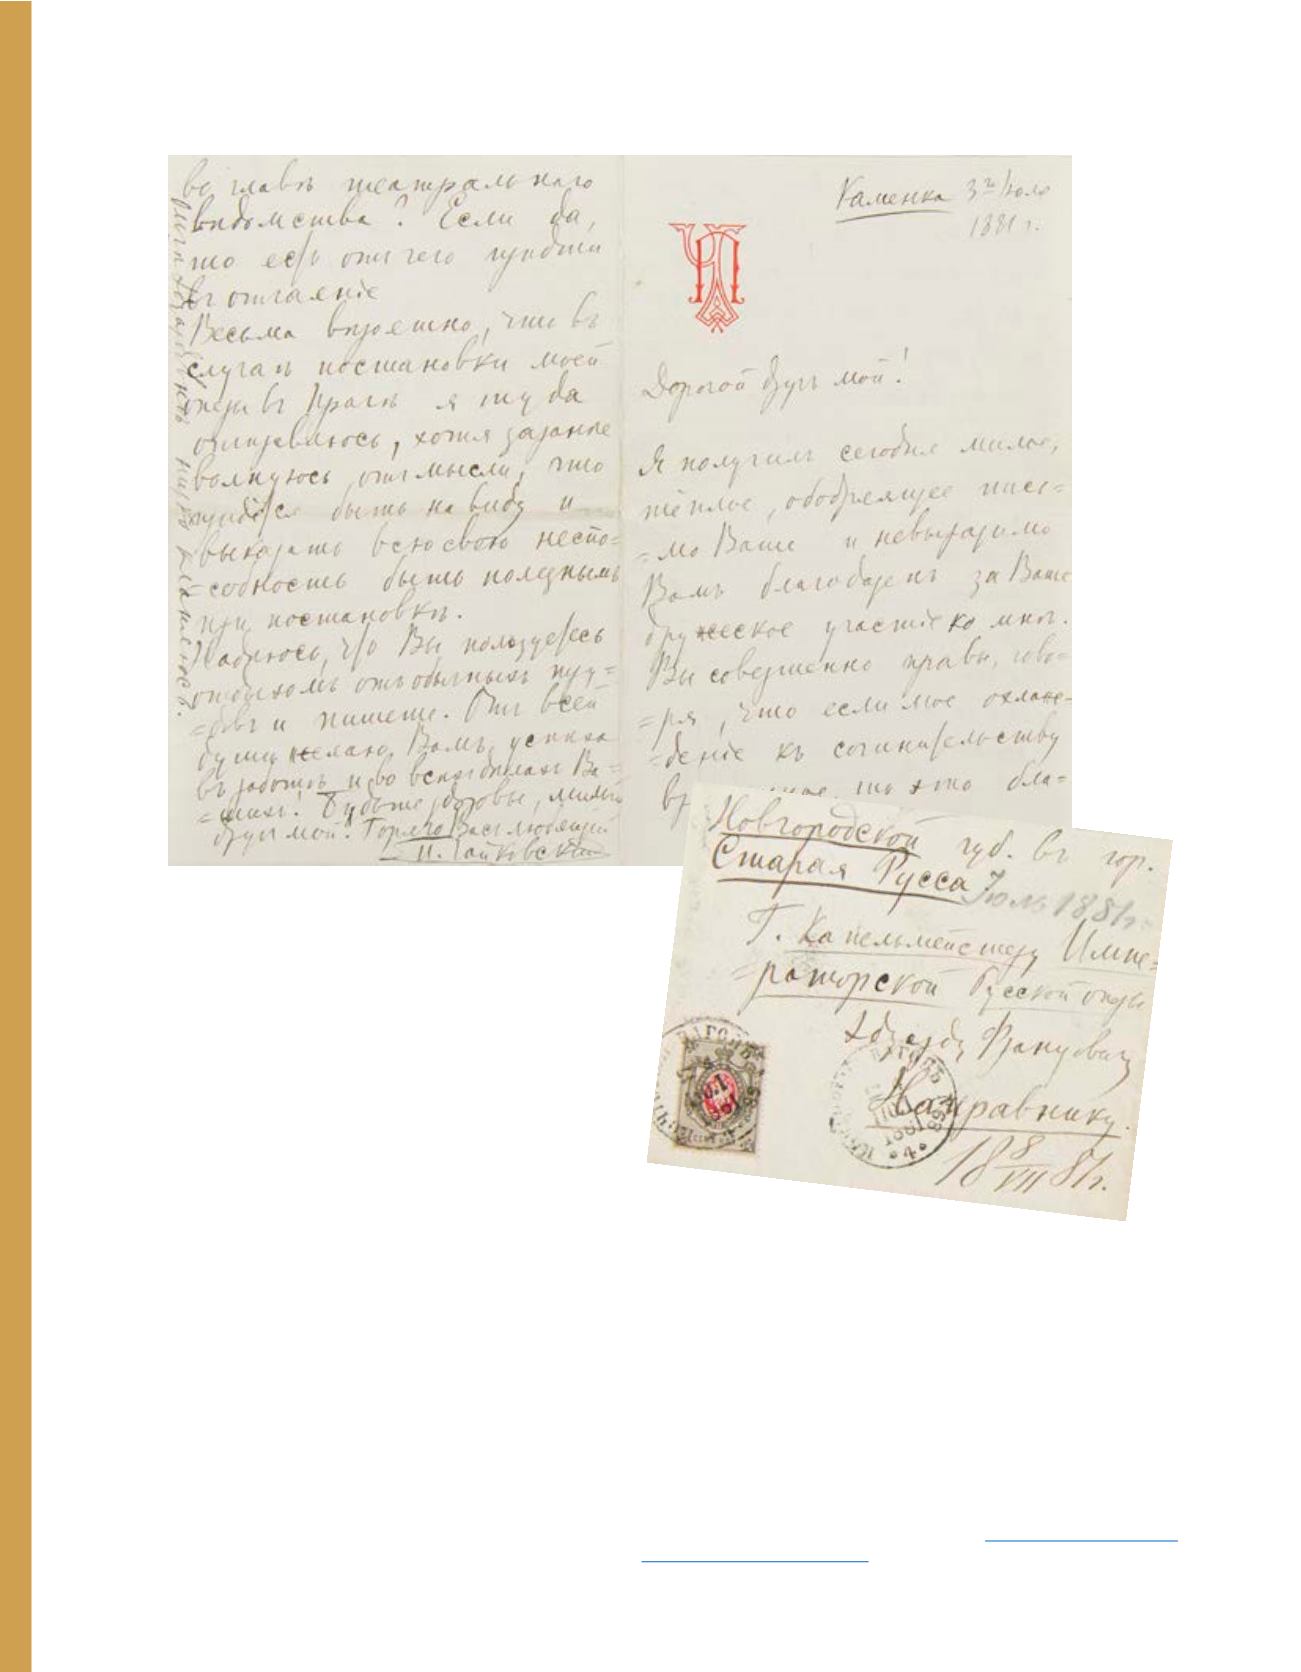 Каменка 3го Іюля
1881 г.
ЧП
Дорогой другъ мой!
Я получилъ сегодня милое,
тёплое, ободряющее пись=
=мо Ваше и невыразимо
Вамъ благодаренъ за Ваше
дружеское участіе ко мнѣ.
Вы совершенно правы, гово=
=ря, что если мое охлаж=
=деніе къ сочинительству
вр то это бла=
во главѣ театральнаго
вѣдомства? Если да,
то есть отчего придти
въ отчаяніе
Весьма вѣроятно, что въ
случаѣ постановки моей
оперы въ Прагѣ я туда
отправлюсь, хотя заранѣе
волнуюсь отъ мысли, что
придется быть на виду и
выказать всю свою неспо=
=собность быть полезнымъ
при постановкѣ.
Надѣюсь, что Вы пользуетесь
отдыхомъ отъ обычныхъ тру=
=довъ и пишете. Отъ всей
души желаю Вамъ успѣха
въ работѣ и во всѣхъ дѣлахъ Ва=
=шихъ! Будьте здоровы, милый
другъ мой! Горячо Васъ любящій
П. Чайковскій
Новгородской губ. въ гор.
Старая Русса Іюль 1881 г.
Г. Капельмейстеру Импе=
=раторской Русской оперы
Эдуарду Францовичу
Направнику.
18 8/VII 81 г.